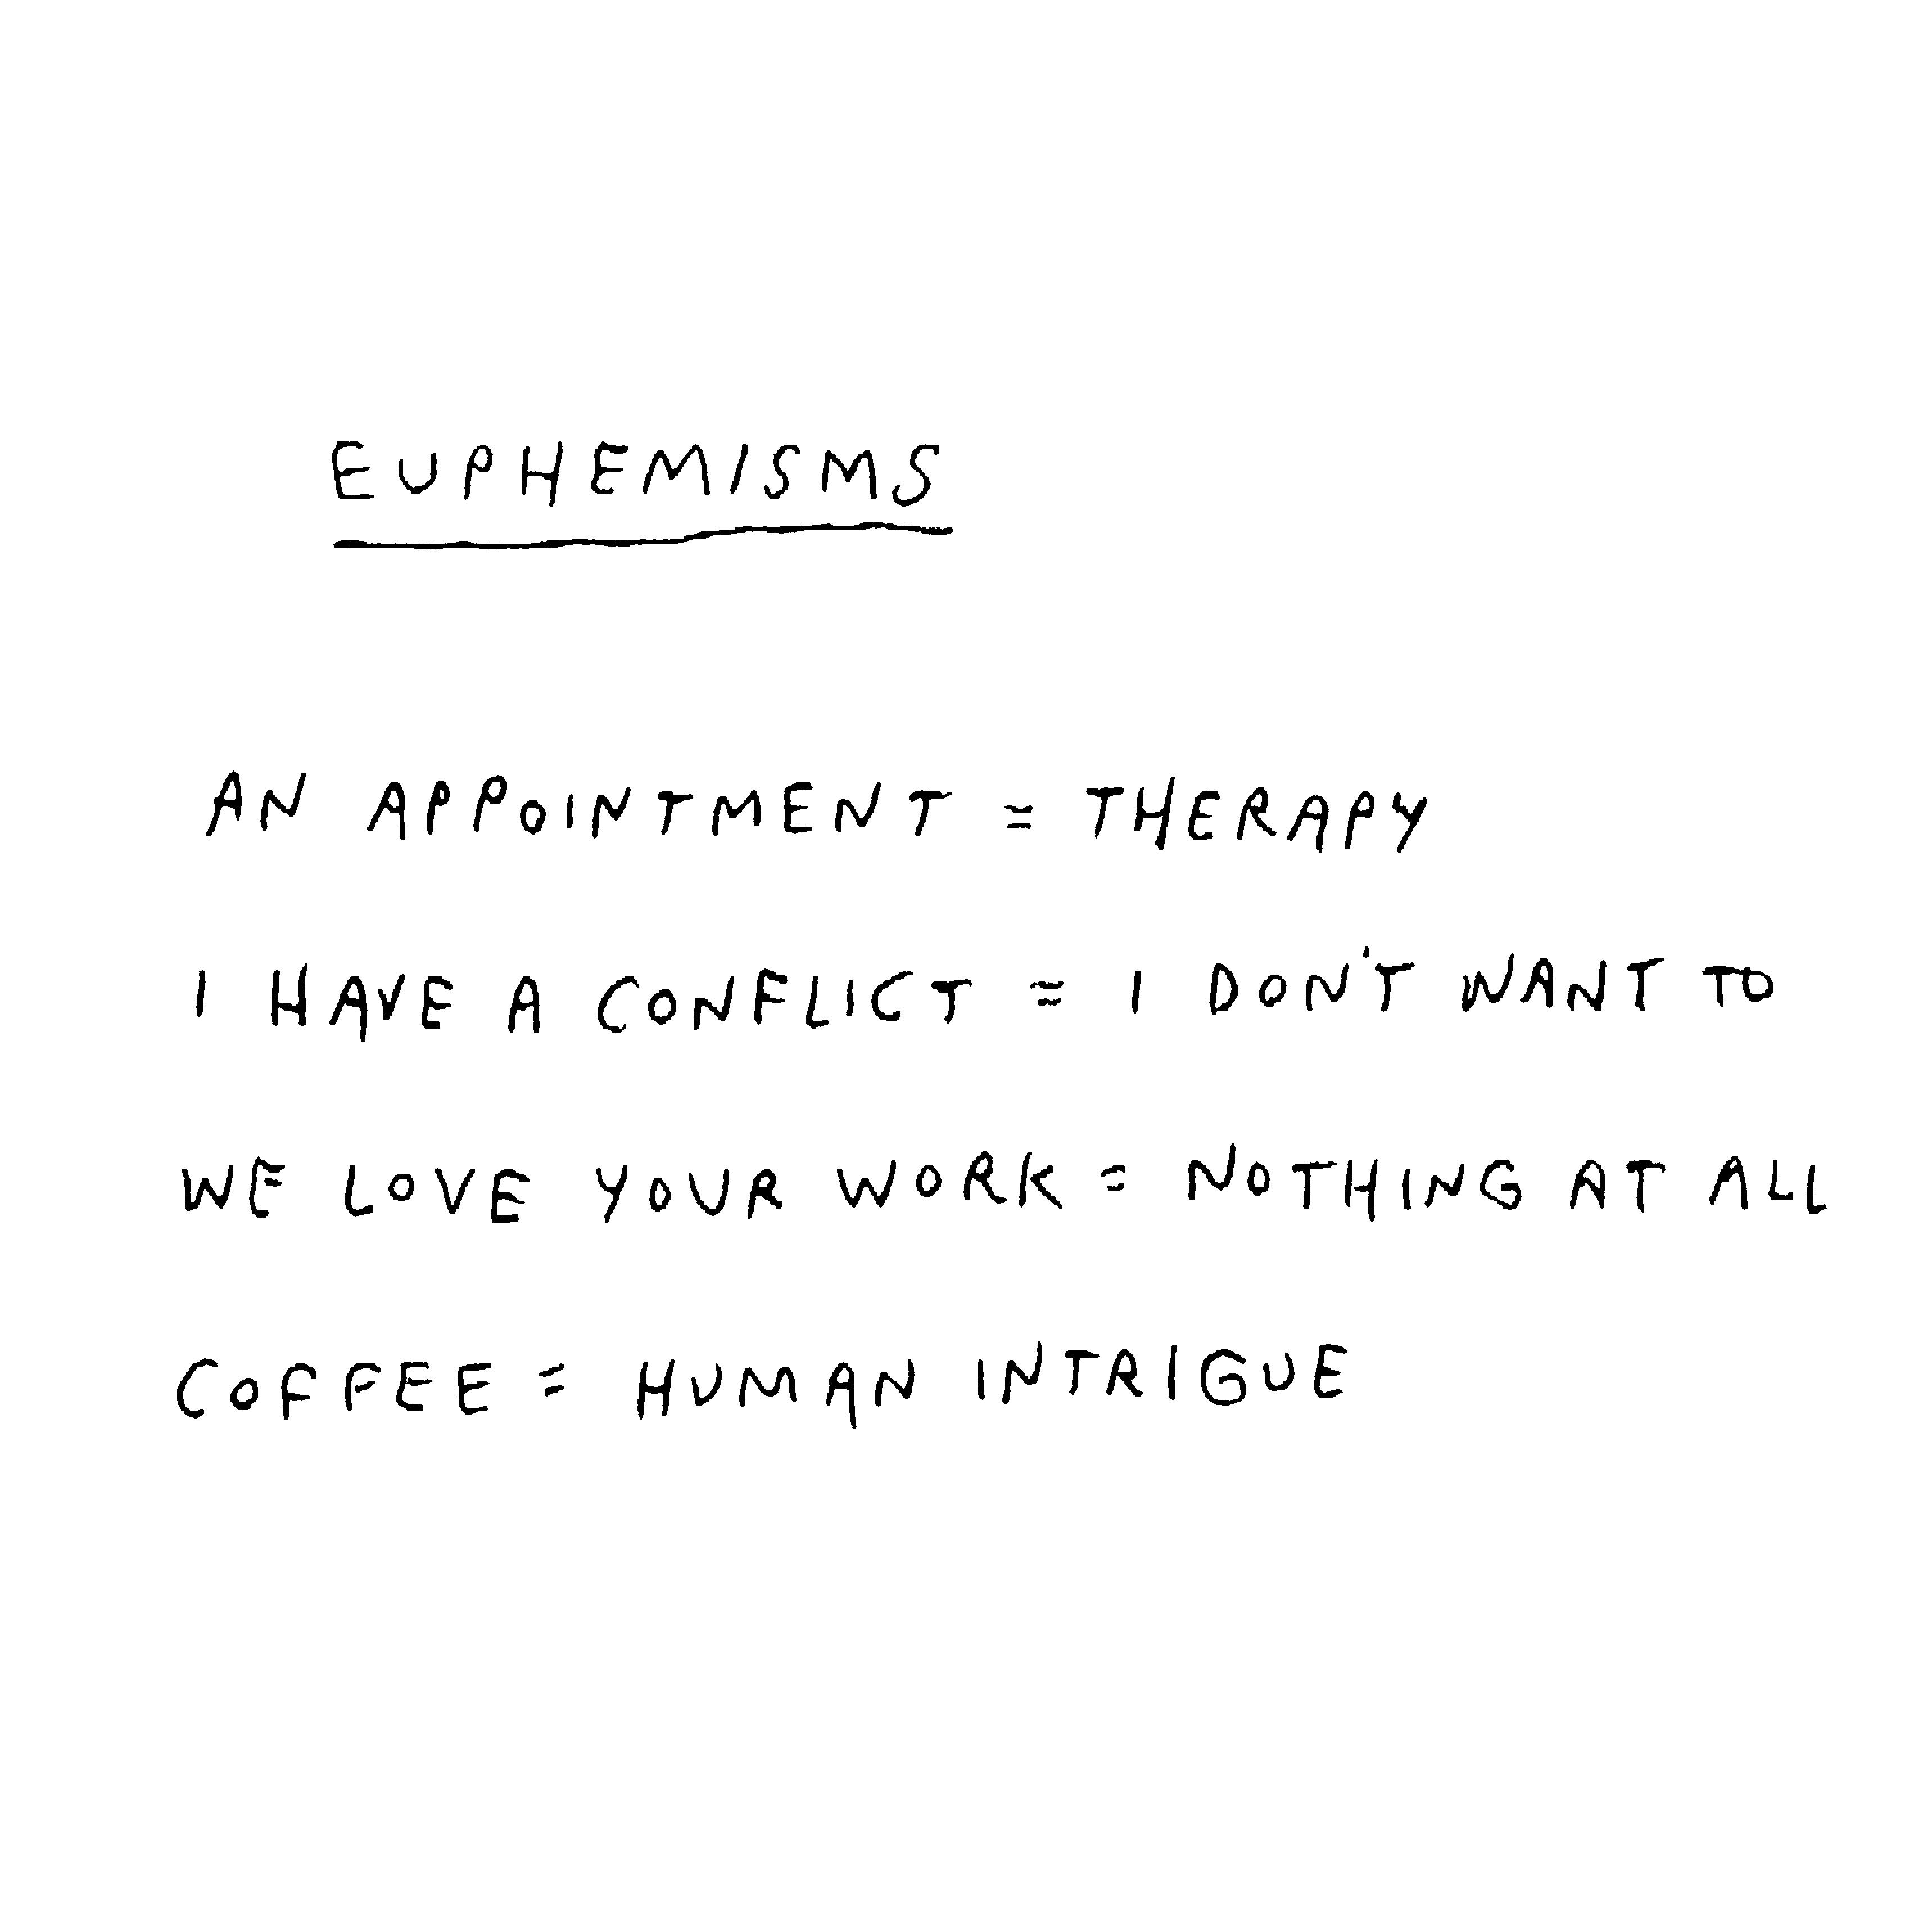 EUPHEMISMS
AN APPOINTMENT = THERAPY
I HAVE A CONFLICT = I DON'T WANT TO
WE LOVE YOUR WORK = NOTHING AT ALL
COFFEE = HUMAN INTRIGUE